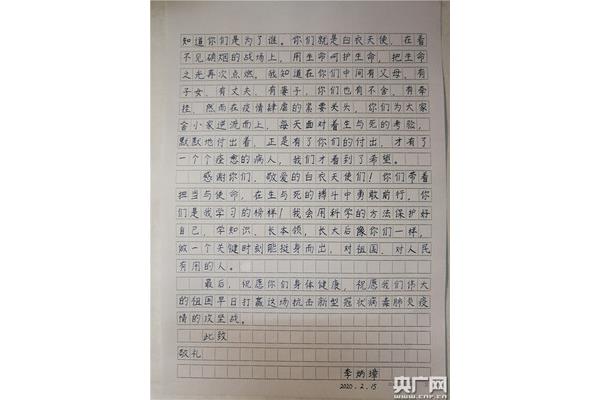 知道你们是为了谁。你们就是白衣天使，在看
不见硝烟的战场上，用生命呵护生命，把生命
之光再次点燃。我知道在你们中间有父母、有
子女、有丈夫、有妻子，你们也有不舍、有牵
挂，然而在疫情肆虐的紧要关头，你们为大家
舍小家逆流而上，每天面对着生与死的考验，
默默地付出着，正是有了你们的付出，才有了
一个个痊愈的病人，我们才看到了希望。
感谢你们，敬爱的白衣天使们！你们带着
担当与使命，在生与死的搏斗中勇敢前行，你
们是我学习的榜样！我会用科学的方法保护好
自己，学知识、长本领，长大后像你们一样，
做一个关键时刻能挺身而出，对祖国、对人民
有用的人。
最后，祝愿你们身体健康，祝愿我们伟大
的祖国早日打赢这场抗击新型冠状病毒肺炎疫
情的攻坚战。
此致
敬礼
李炳璋
2020.2.15
央广网
www.cnr.cn